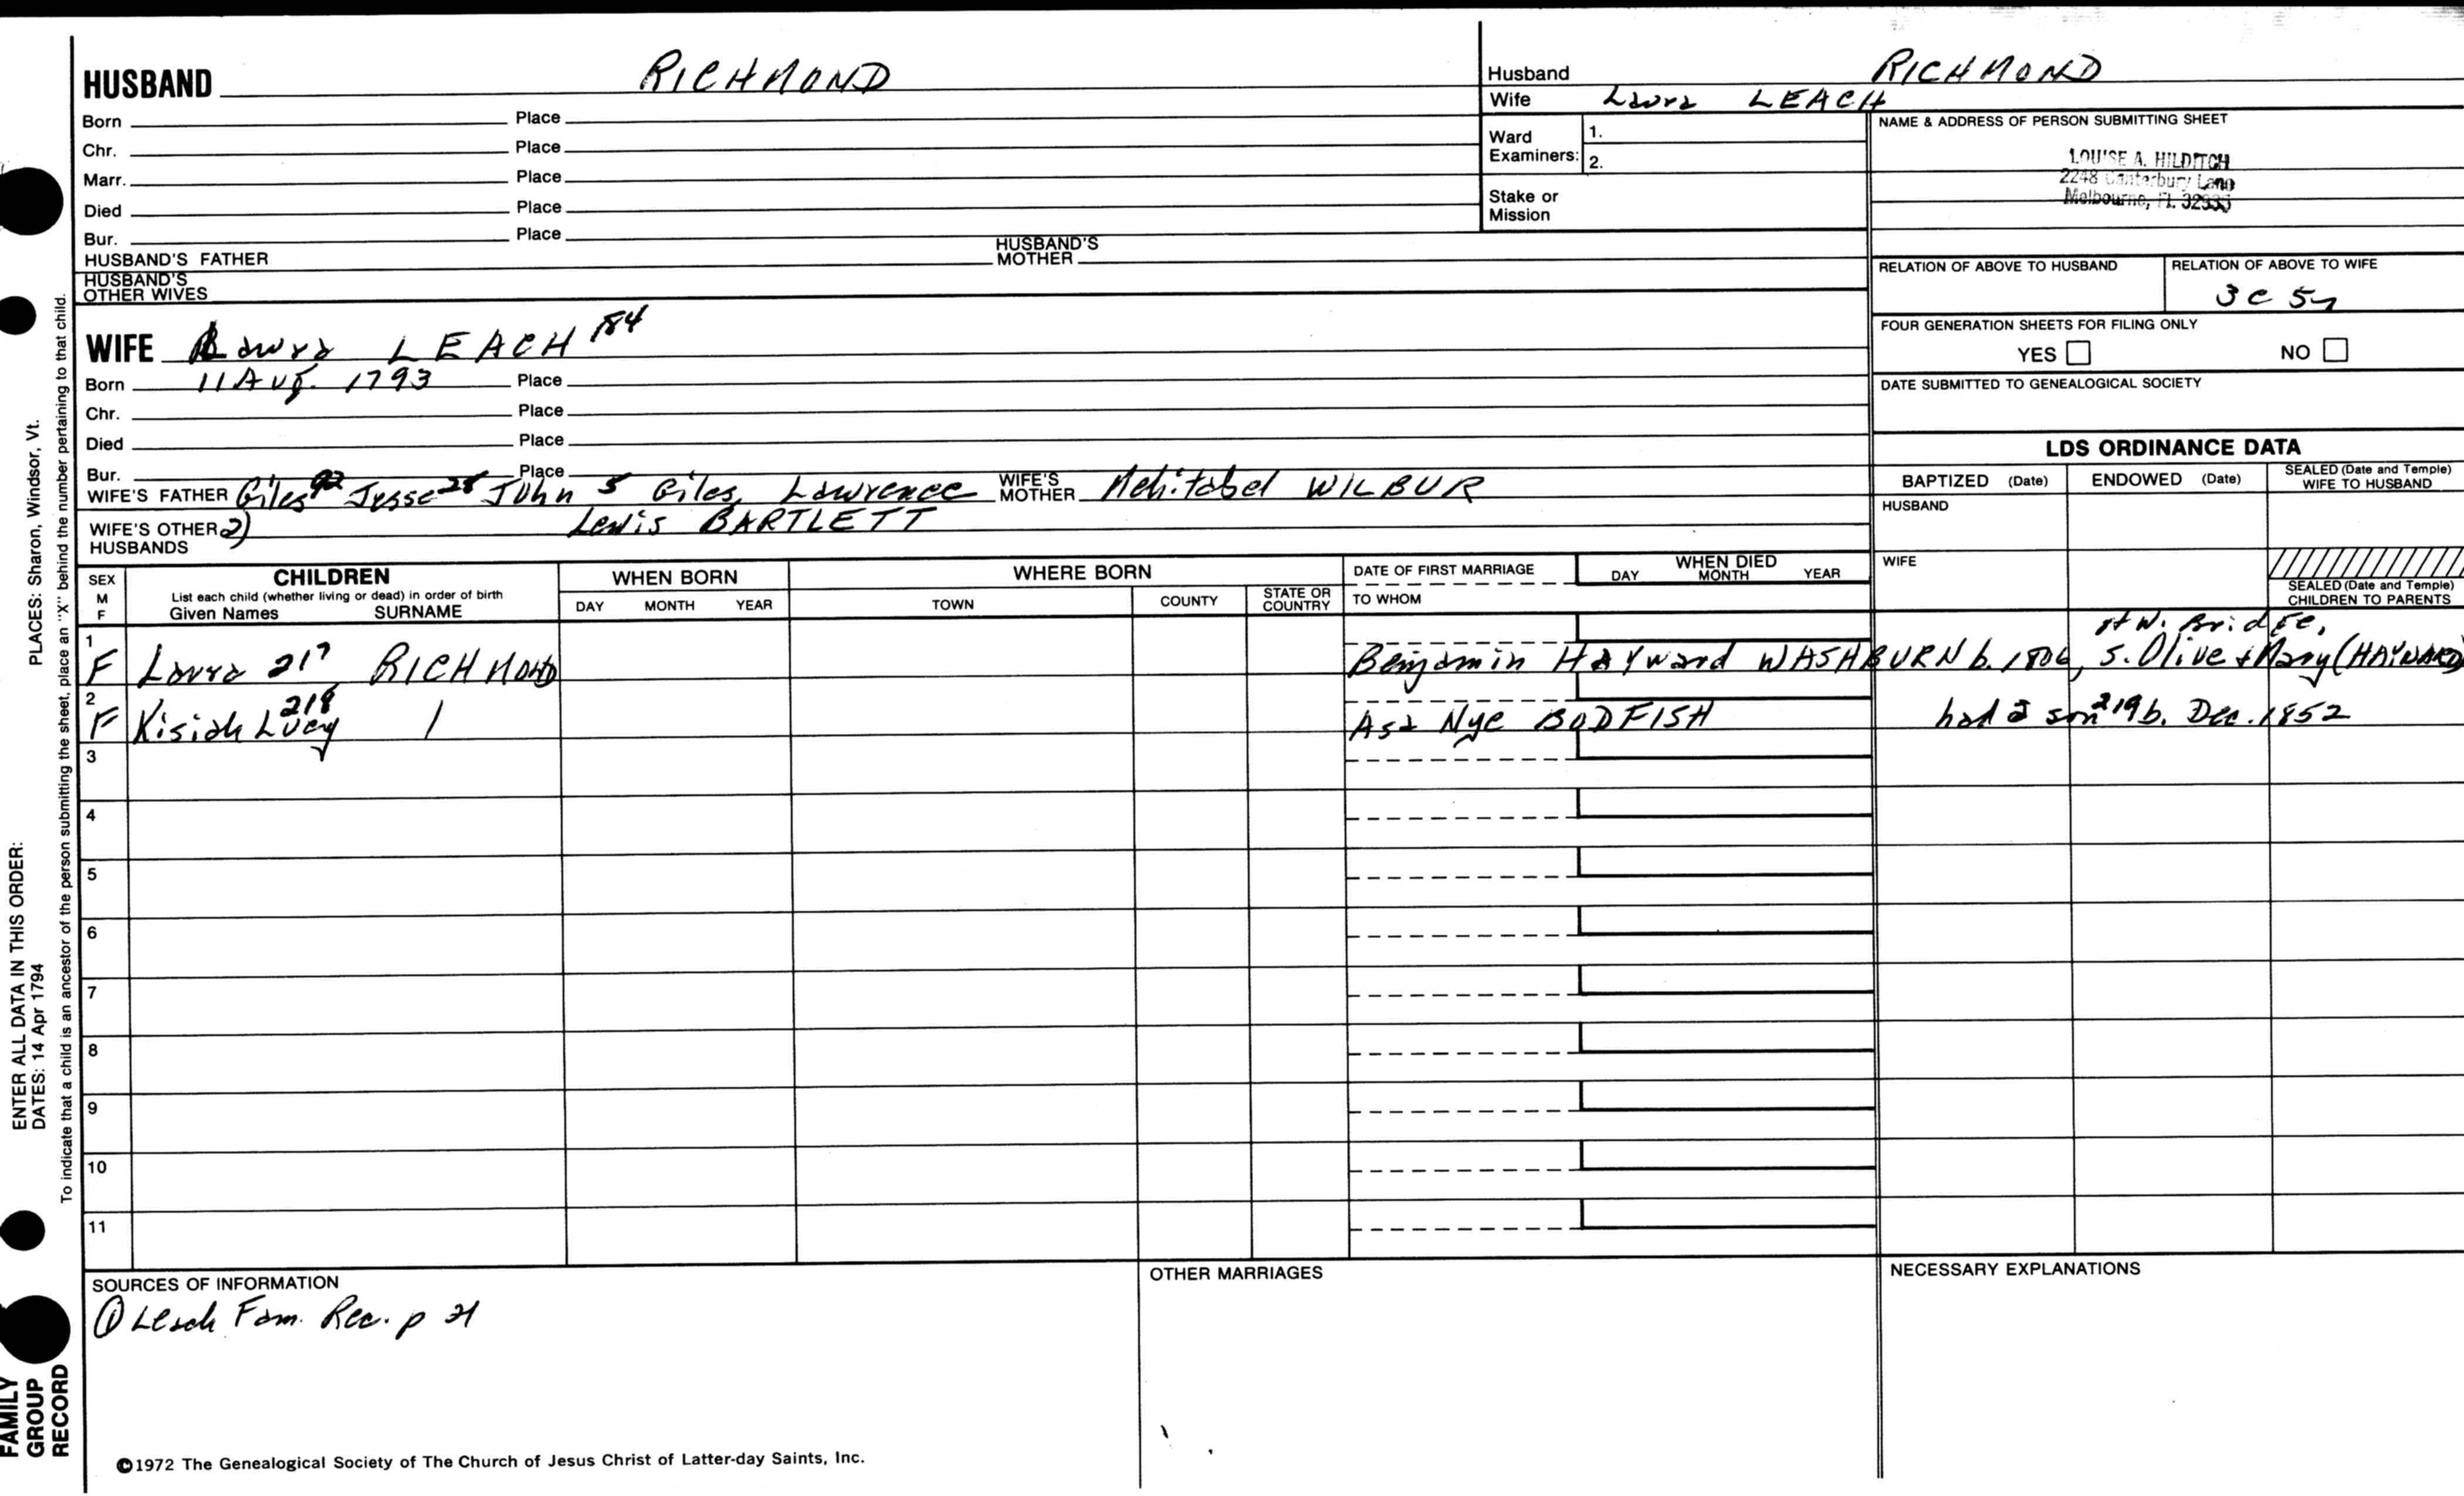 HUSBAND RICHMOND
Born Place
Chr. Place
Marr. Place
Died Place
Bur. Place
HUSBAND'S FATHER HUSBAND'S MOTHER
HUSBAND'S OTHER WIVES
Husband RICHMOND
Wife Laura LEACH
Ward Examiners: 1.
2.
Stake or Mission
NAME & ADDRESS OF PERSON SUBMITTING SHEET
LOUISE A. HILDITCH
2248 Canterbury Lane
Melbourne, Fl. 32935
RELATION OF ABOVE TO HUSBAND
RELATION OF ABOVE TO WIFE
3 C 5
FOUR GENERATION SHEETS FOR FILING ONLY
YES NO
DATE SUBMITTED TO GENEALOGICAL SOCIETY
WIFE Laura LEACH 184
Born 11 Aug. 1793 Place
Chr. Place
Died Place
Bur. Place
WIFE'S FATHER Giles 92 Jesse 28 John 5 Giles, Lawrence WIFE'S MOTHER Mehitabel WILBUR
WIFE'S OTHER HUSBANDS 2) Lewis BARTLETT
LDS ORDINANCE DATA
BAPTIZED (Date) ENDOWED (Date) SEALED (Date and Temple) WIFE TO HUSBAND
HUSBAND
WIFE
SEALED (Date and Temple) CHILDREN TO PARENTS
SEX M F
CHILDREN
List each child (whether living or dead) in order of birth
Given Names SURNAME
WHEN BORN
DAY MONTH YEAR
WHERE BORN
TOWN COUNTY STATE OR COUNTRY
DATE OF FIRST MARRIAGE
TO WHOM
WHEN DIED
DAY MONTH YEAR
of W. Bridge,
1 F Laura 217 RICHMOND Benjamin HAYward WASHBURN b. 1806, s. Olive & Mary (HAYWARD)
2 F Kisiah Lucy 218 Asa Nye BODFISH had a son 219 b. Dec. 1852
3
4
5
6
7
8
9
10
11
SOURCES OF INFORMATION
① Leach Fam. Rec. p 21
OTHER MARRIAGES
NECESSARY EXPLANATIONS
©1972 The Genealogical Society of The Church of Jesus Christ of Latter-day Saints, Inc.
ENTER ALL DATA IN THIS ORDER:
DATES: 14 Apr 1794
PLACES: Sharon, Windsor, Vt.
To indicate that a child is an ancestor of the person submitting the sheet, place an "X" behind the number pertaining to that child.
FAMILY
GROUP
RECORD